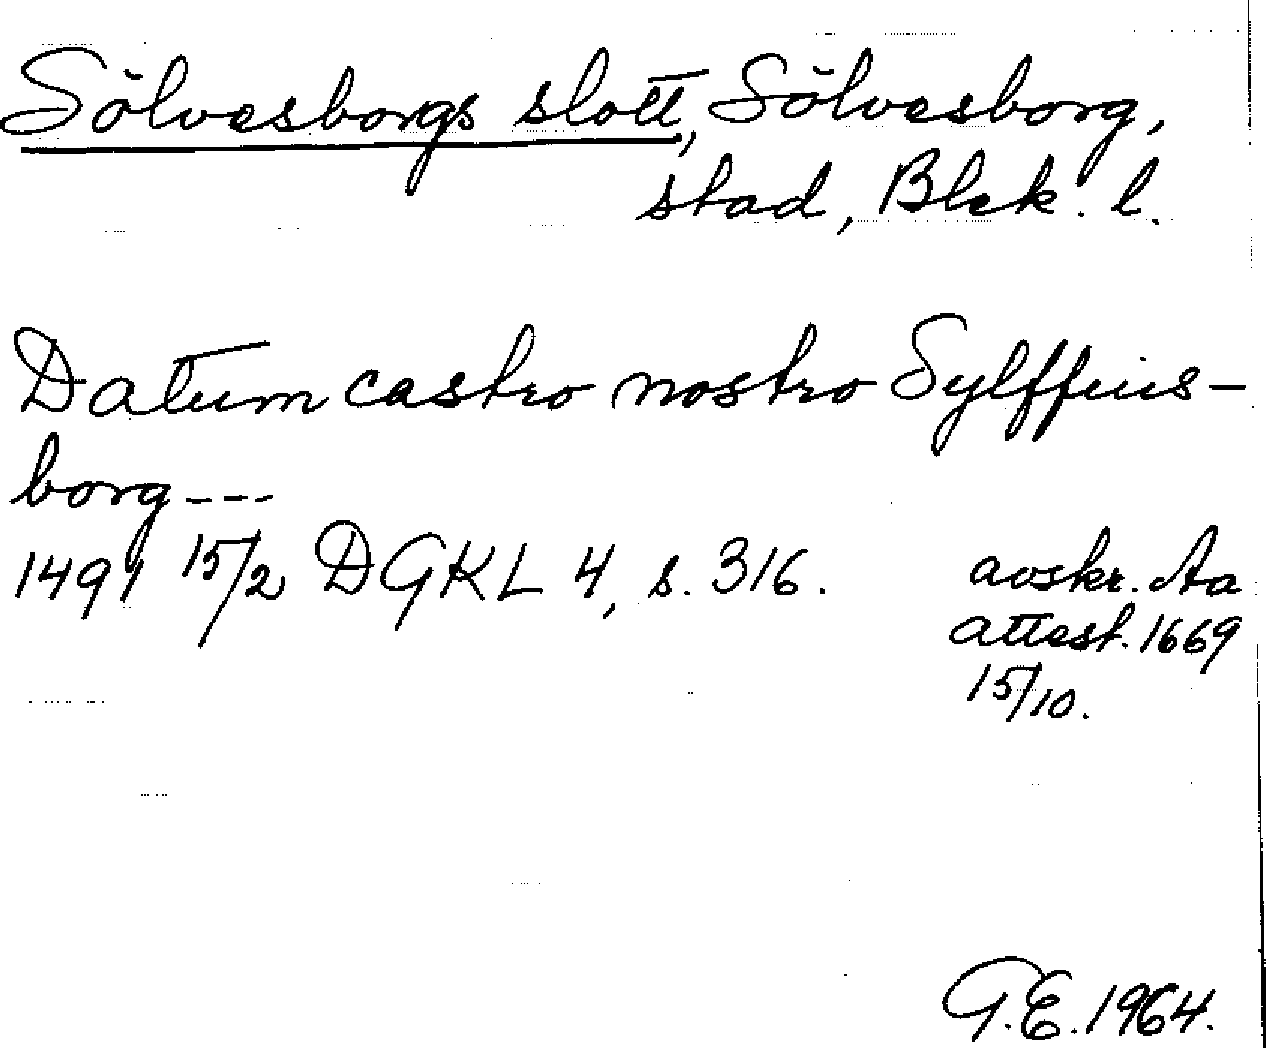 Sölvesborgs slott, Sölvesborg,
stad, Blek. l.
Datum castro nostro Sylffuis-
borg---
1491 15/2 DGKL 4, s. 316.
avskr. Aa
attest. 1669
15/10.
G.E. 1964.